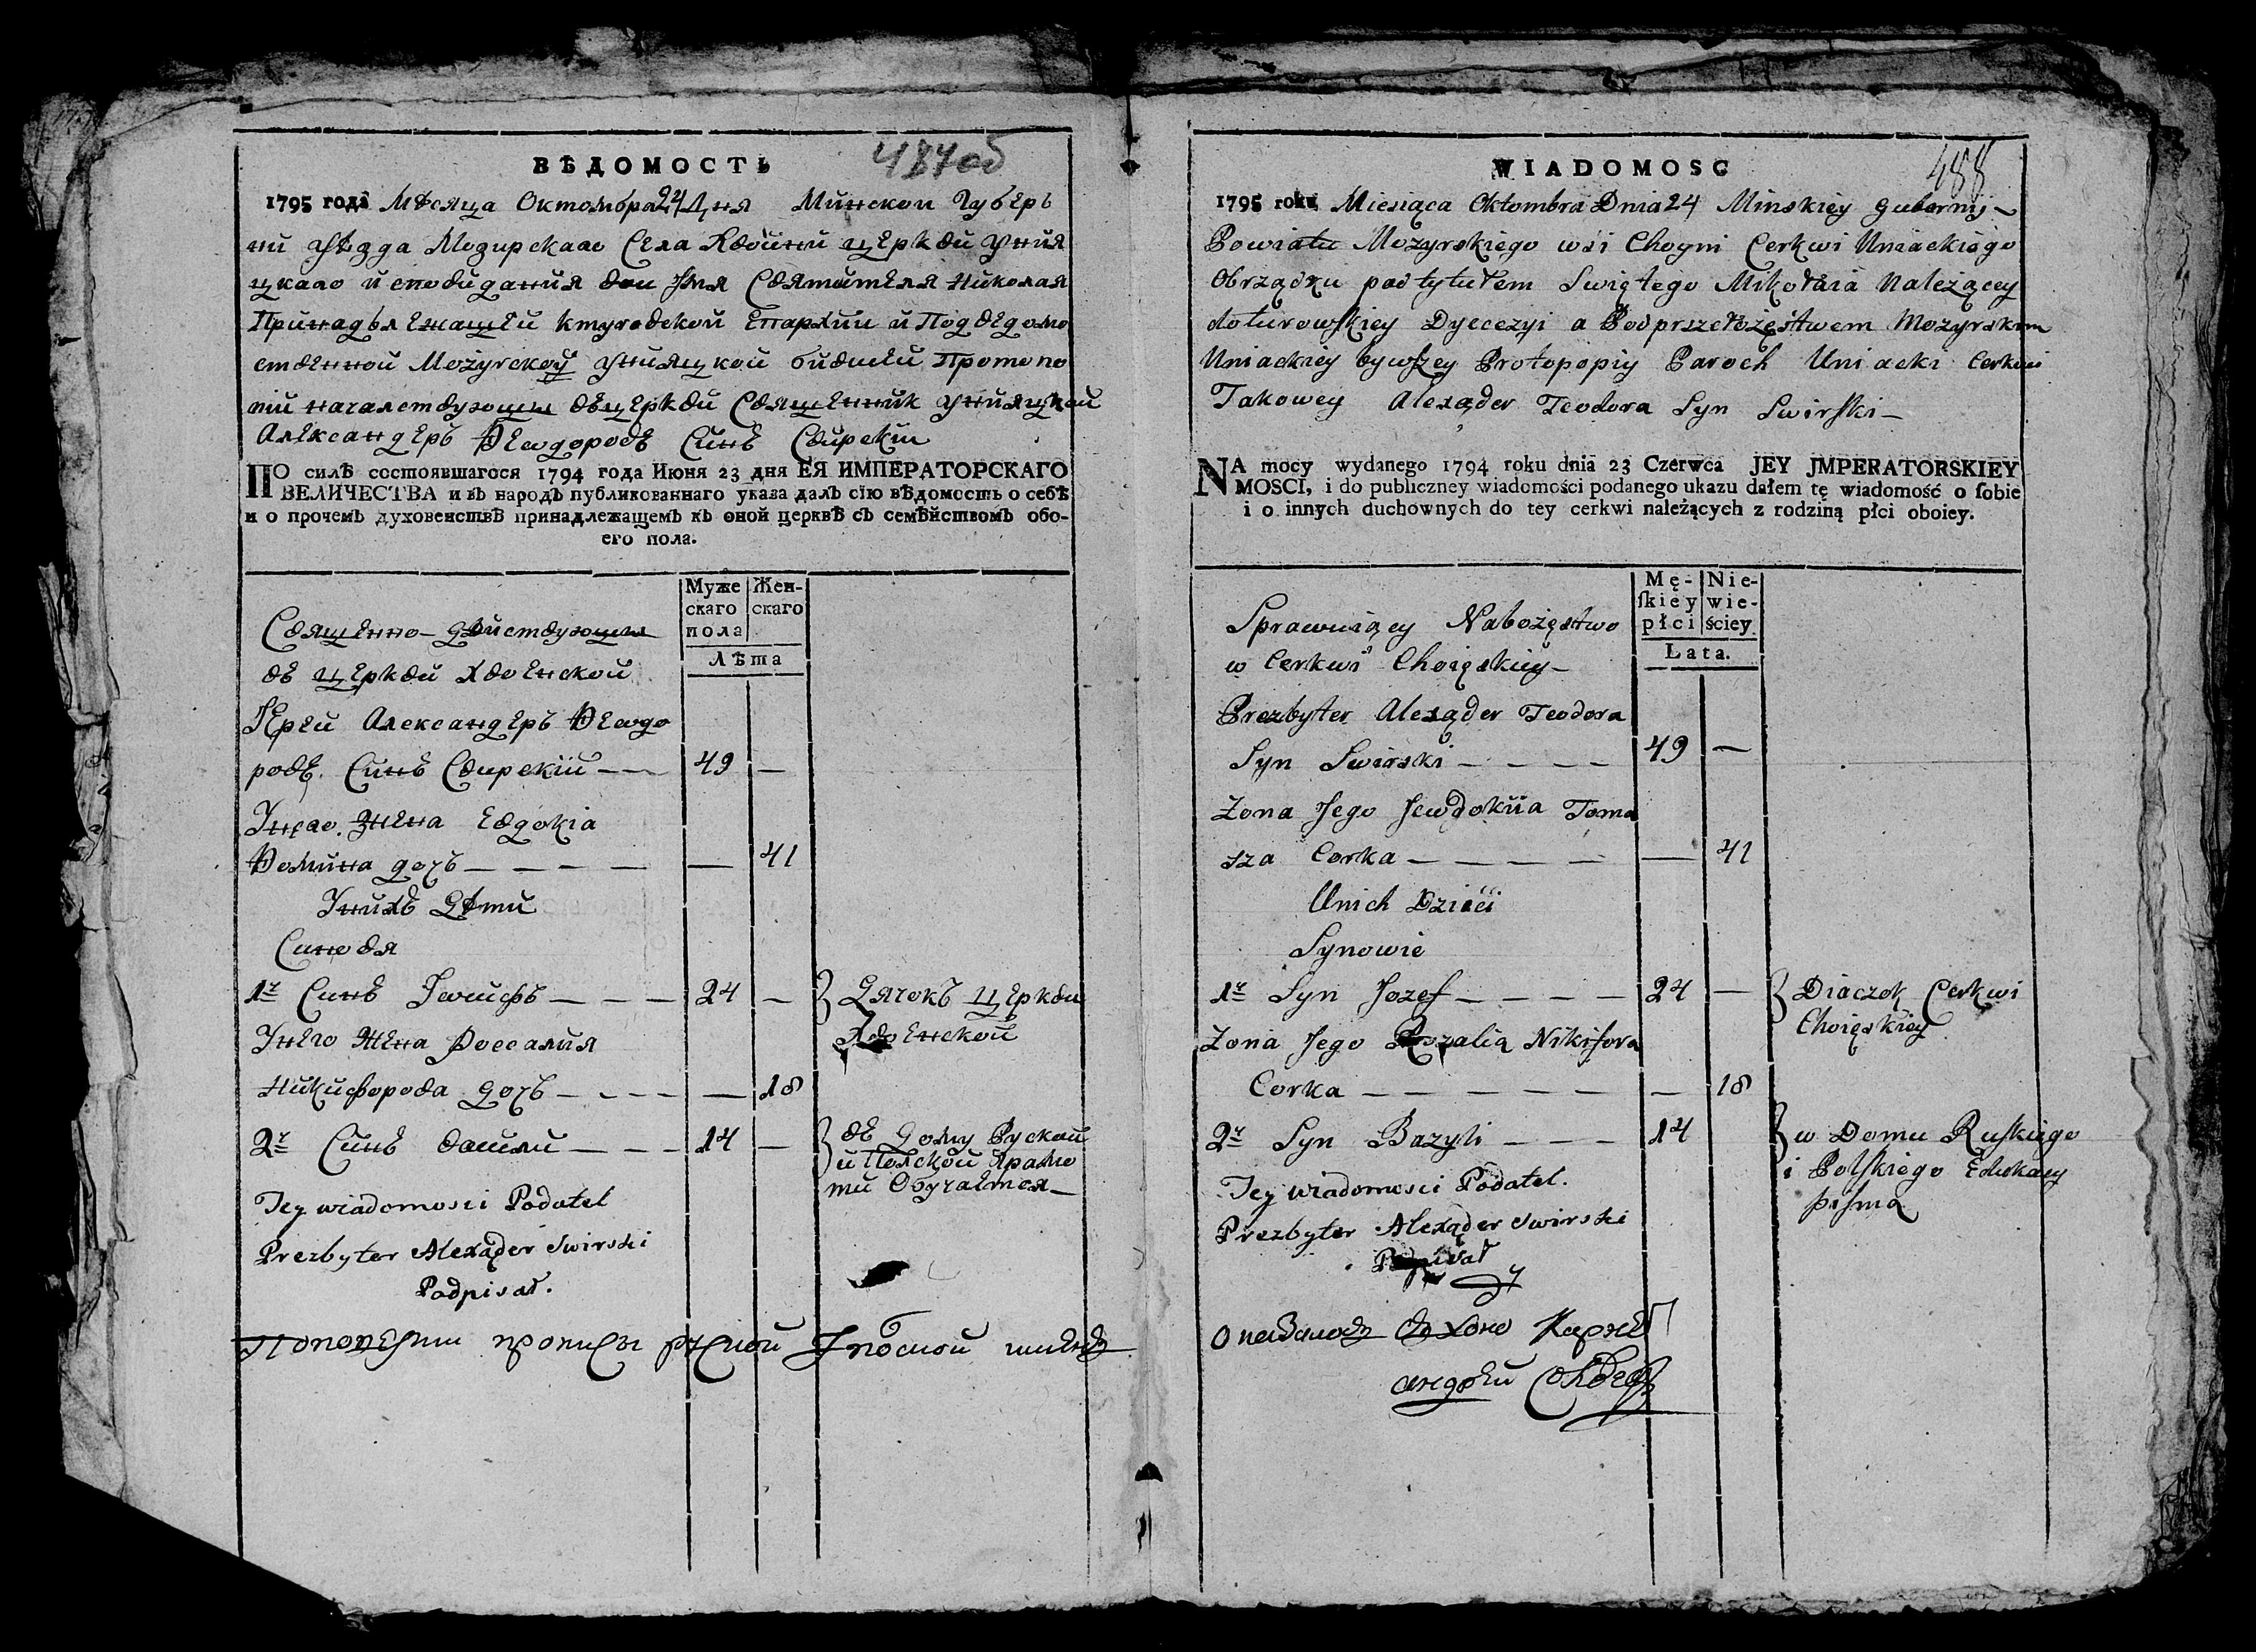 ВѢДОМОСТЬ
487об
1795 года Мѣсяца Октомбра 24 Дня Минскои Губѣръ
нии уѣзда Мозирскаго Села Хвойни цѣркви уния
цкаго исповиданиа во имя Святитѣля Николая
Принадълѣжащѣи ктуровской Епархии и Подвѣдомо
ственной Можурской унияцкой бившѣй Протопо
пии началствующи вѣцѣркви Свящѣнник унияцкой
Алѣксандѣръ Ѳеодоровъ Синъ Свирскiи
ПО силѣ состоявшагося 1794 года Июня 23 дня ЕЯ ИМПЕРАТОРСКАГО
ВЕЛИЧЕСТВА и въ народъ публикованнаго указа далъ сїю вѣдомость о себѣ
и о прочемъ духовенствѣ принадлежащемъ къ оной церквѣ съ семѣйствомъ обо-
его пола.
Муже
скаго
пола
Жен-
скаго
Лѣта
Свящѣнно-дѣйствующи
вѣ цѣркви Хвоѣнской
Iѣрей Алѣксандѣръ Ѳеодо
ровъ Синъ Свирскiй — — 49 —
Унего жѣна Евдокiа
Ѳомина дочъ — — — — — 41
Унихъ Дѣти
Синовя
1й Синъ Iосифъ — — — 24 — Дячокъ Цѣркви
Хвоѣнской
Унѣго Жѣна Россалия
Никифорова дочъ — — — — 18
2й Синъ Васили — — — 14 — вѣ Дому Руской
и Полской Грамо
ти Обучаѣтся —
Tey wiadomosci Podatel
Prezbyter Alexąder Swirski
Podpisał.
WIADOMOSC
488
1795 roku Miesiąca Oktombra Dnia 24 Minskiey Guberniy
Powiatu Mozyrskiego wsi Choyni Cerkwi Uniackiego
Obrządku pod tytułem Swiętego Mikołaia Należącey
doturowskiey Dyecezyi a Podprzełożęstwem Mozyrskim
Uniackiey bywszey Protopopiy Paroch Uniacki Cerkwi
Takowey Alexąder Teodora Syn Swirski —
NA mocy wydanego 1794 roku dnia 23 Czerwca JEY JMPERATORSKIEY
MOSCI, i do publiczney wiadomości podanego ukazu dałem tę wiadomość o sobie
i o innych duchownych do tey cerkwi należących z rodziną płci oboiey.
Mę-
skiey
płci
Nie-
wie-
ściey
Lata.
Sprawuiący Nabożęstwo
w Cerkwi Choięskiey —
Prezbyter Alexąder Teodora
Syn Swirski — — — — 49 —
Żona Jego Jewdokiia Toma
sza Corka — — — — — 41
Unich Dzieci
Synowie
1y Syn Jozef — — — — 24 — Diaczok Cerkwi
Choięskiey
Żona Jego Rozalia Nikifora
Corka — — — — — — — 18
2y Syn Bazyli — — — 14 w Domu Ruskiego
i Polskiego Edukacy
pisma
Tey wiadomosci Podatel.
Prezbyter Alexąder Swirski
Podpisał